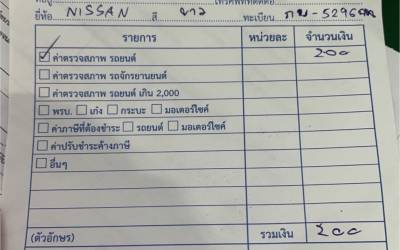 ยี่ห้อ NISSAN สี ขาว ทะเบียน
รายการ หน่วยละ จำนวนเงิน
ค่าตรวจสภาพ รถยนต์ 200
ค่าตรวจสภาพ รถจักรยานยนต์
ค่าตรวจสภาพ รถยนต์ เกิน 2,000
พรบ. เก๋ง กระบะ มอเตอร์ไซค์
ค่าภาษีที่ต้องชำระ รถยนต์ มอเตอร์ไซค์
ค่าปรับชำระค้างภาษี
อื่นๆ
(ตัวอักษร) รวมเงิน 200